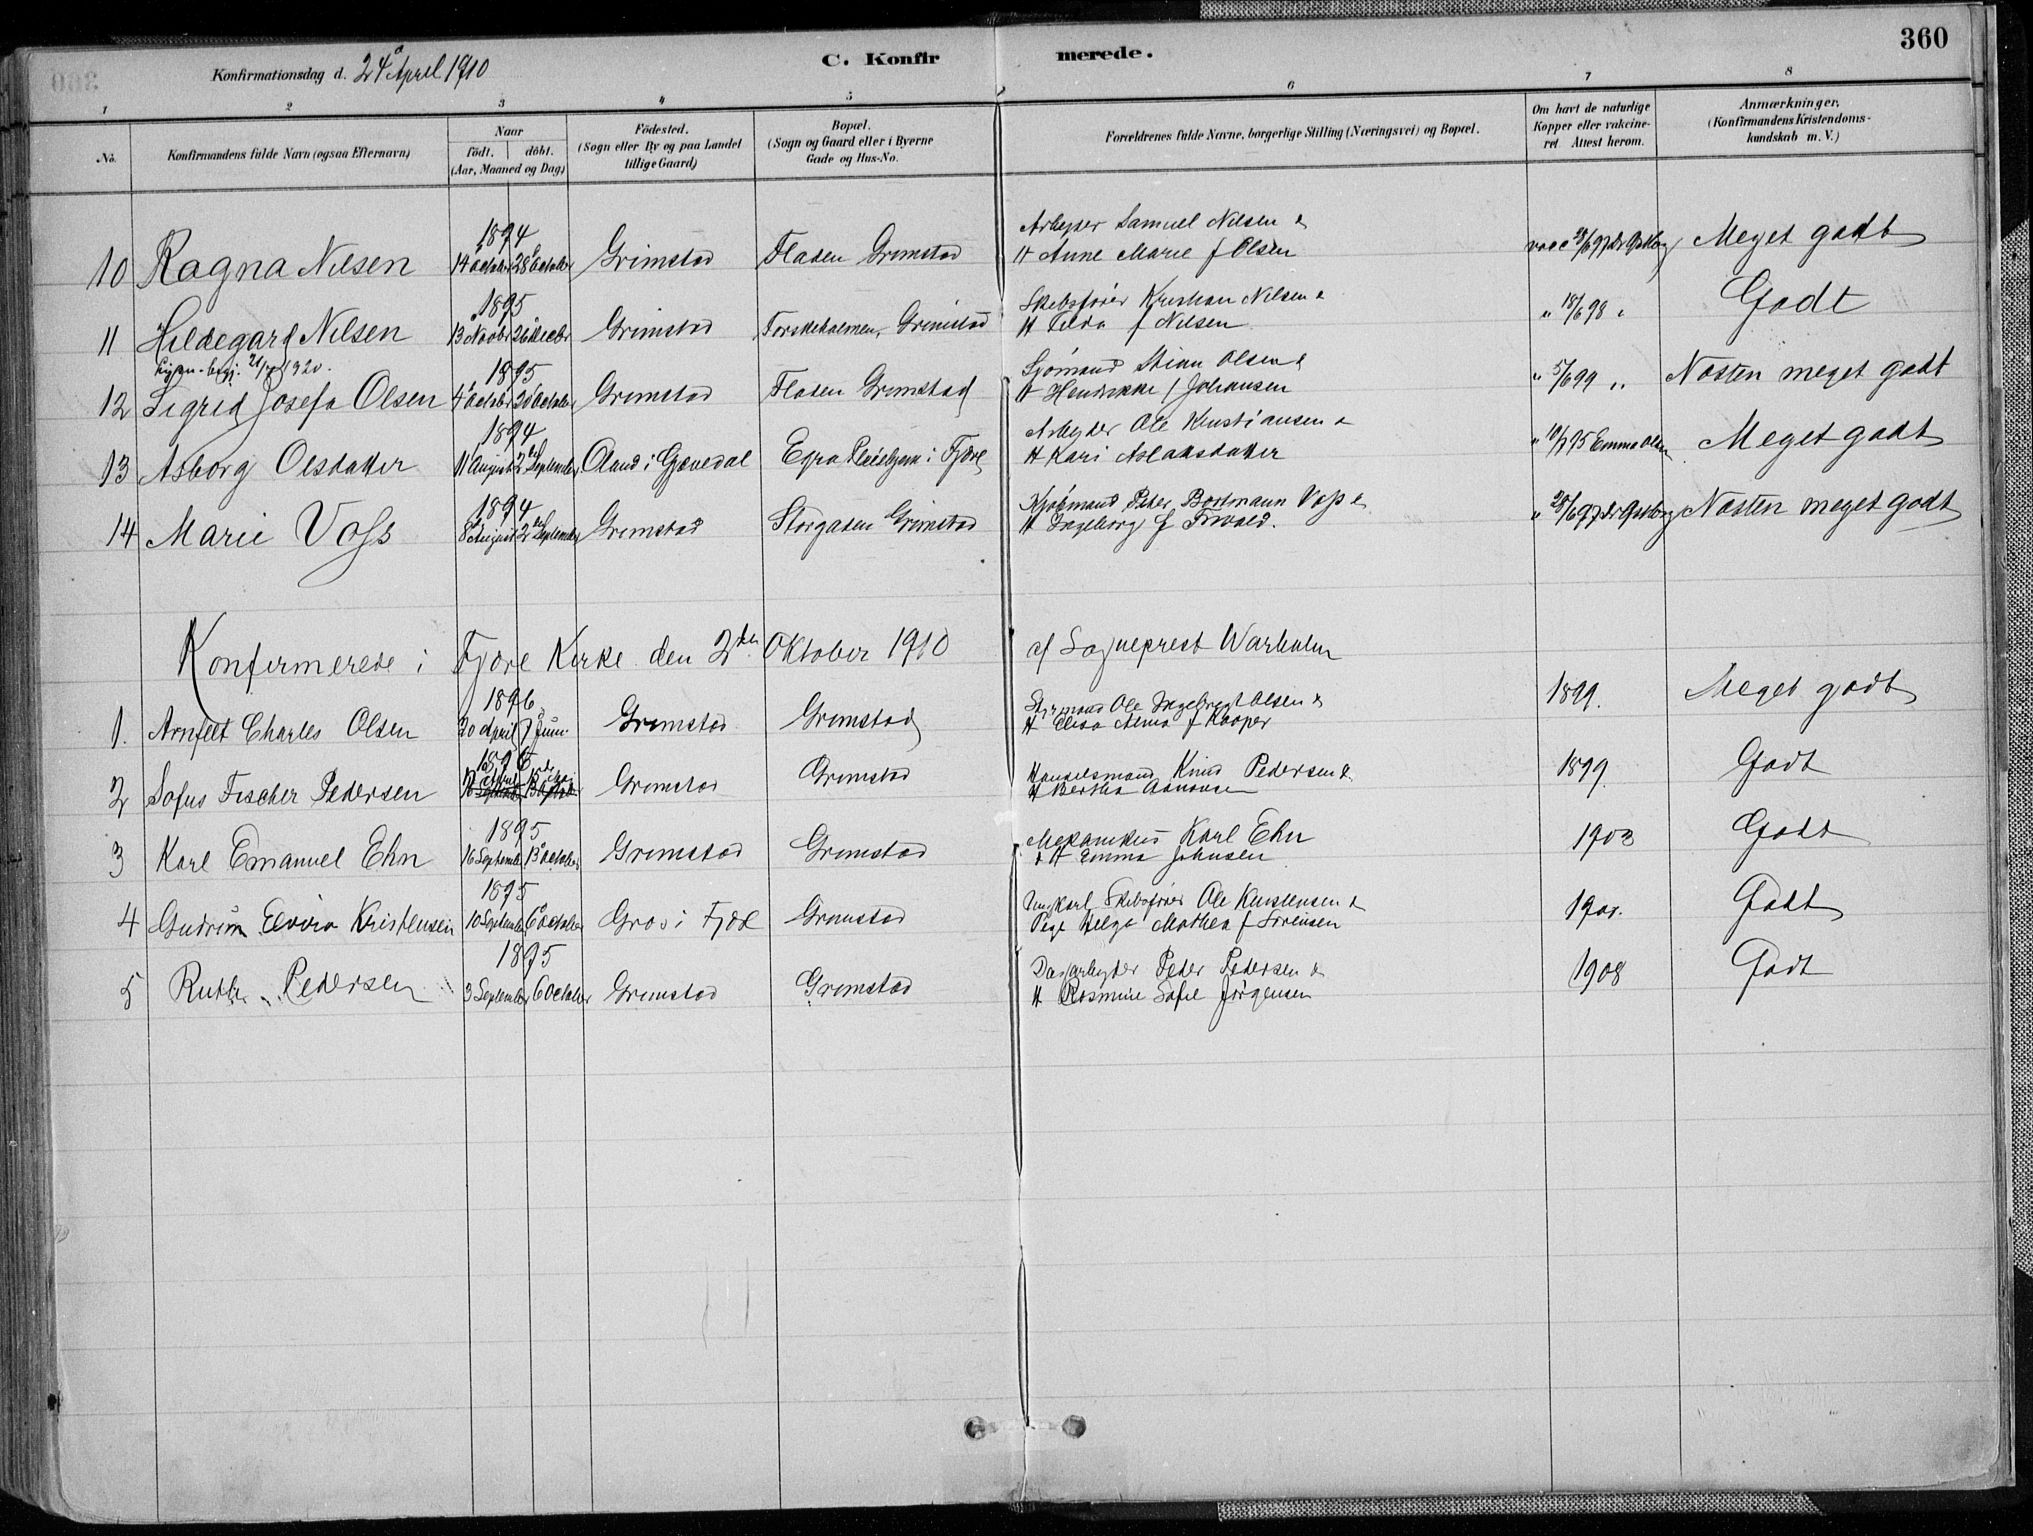 360
Konfirmationsdag d. 24 April 1910
C. Konfirmerede.
1 2 3 4 5 6 7 8
No.
Konfirmandens fulde Navn (ogsaa Efternavn)
Naar
födt. döbt.
(Aar, Maaned og Dag)
Födested.
(Sogn eller By og paa Landet
tillige Gaard)
Bopæl.
(Sogn og Gaard eller i Byerne
Gade og Hus-No.
Forældrenes fulde Navne, borgerlige Stilling (Næringsvei) og Bopæl.
Om havt de naturlige
Kopper eller vakcine-
ret Attest herom.
Anmærkninger,
(Konfirmandens Kristendoms-
kundskab m. V.)
1894
10 Ragna Nilsen 14 October 28 October Grimstad Fladen Grimstad Arbeyder Samuel Nilsen & H Anne Marie f Olsen vacc 28/6 97 Meget godt
1895
11 Hildegard Nilsen 13 Novbr 26 Decbr Grimstad Torskeholmen, Grimstad Skibsfører Kristian Nilsen & H Tilda f Nilsen " 18/6 98 " Godt
1920.
1895
12 Sigrid Josefa Olsen 4 Octobr 20 October Grimstad Fladen Grimstad Sjömand Stian Olsen & H Hendrikke f Johansen " 5/6 99 " Næsten meget godt
1894
13 Asborg Olsdatter 11 August 2 September Oland i Gjøvedal i Fjære Arbeyder Ole Kristiansen & H Kari Aslaksdatter " 95 Emma Olsen Meget godt
1894
14 Marie Voss 8 August 2 September Grimstad Storgaden Grimstad Kjøbmand Peter Bortmann Voss & H Ingeborg f " 28/6 97 Næsten meget godt
Konfirmerede i Fjære Kirke den 2den Oktober 1910 af Sogneprest Warholm
1896
1. Arnfelt Charles Olsen 20 April 7 Juni Grimstad Grimstad Styrmand Ole Ingebregt Olsen & H Elisa Alma f Kooper 1899. Meget godt
1896
2 Sofus Fischer Pedersen Grimstad Grimstad Handelsmand Knud Pedersen & H Bertha Aanonsen 1899. Godt
1895
3 Karl Emanuel Ehn 16 September 13 October Grimstad Grimstad Mekanikus Karl Ehn & H Emma Johnsen 1903 Godt
1895
4 Gudrun Elvira Kristensen 10 September 6 October Gros i Fjære Grimstad Ungkarl Skibsfører Ole Kristensen & Pige Helga Mathea f Sørensen 1901. Godt
1895
5 Ruth Pedersen 3 September 6 October Grimstad Grimstad Dagarbeyder Peder Pedersen & H Rosmine Sofie Jørgensen 1908 Godt